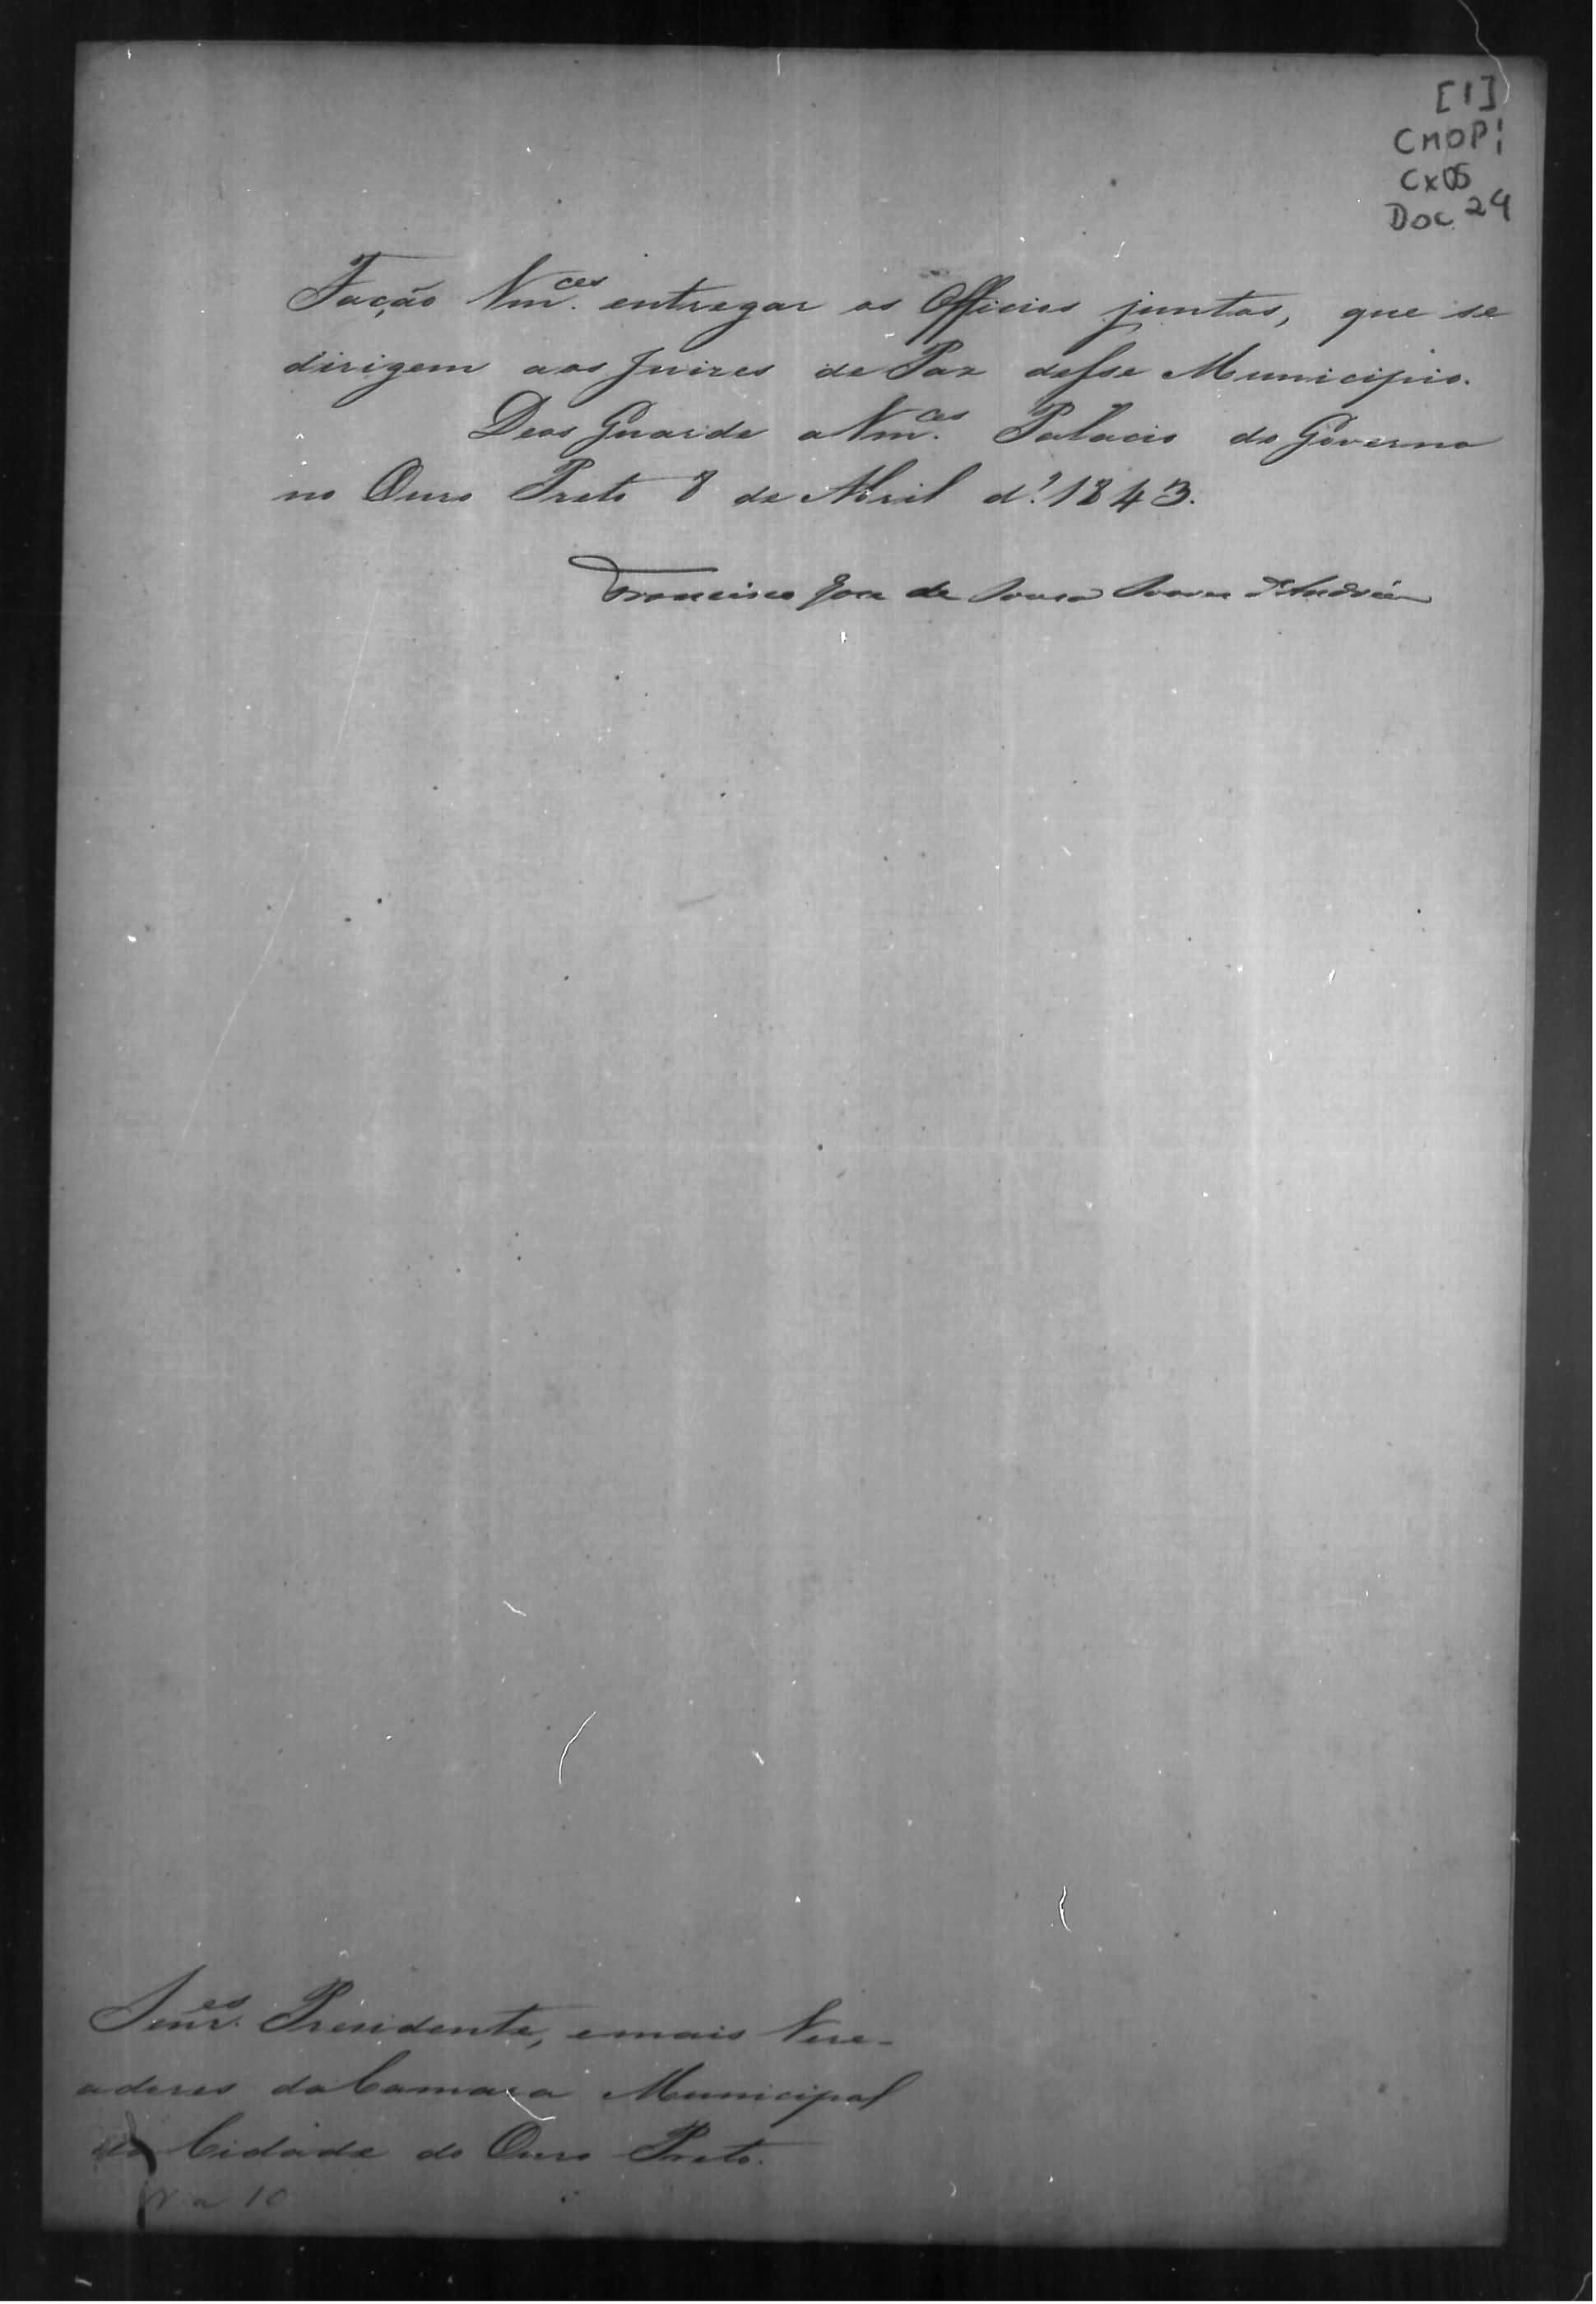 [1]
CMOP:
Cx 05
Doc 24
Fação Vm.ces entregar os Officios juntos, que se
dirigem aos Juizes de Paz desse Municipio.
Deos Guarde a Vm.ces Palacio do Governo
no Ouro Preto 8 de Abril d'1843.
Francisco Joze de Souza Soares d'Andréa
Senr.es Presidente, e mais Vere-
adores da Camara Municipal
da Cidade do Ouro Preto.